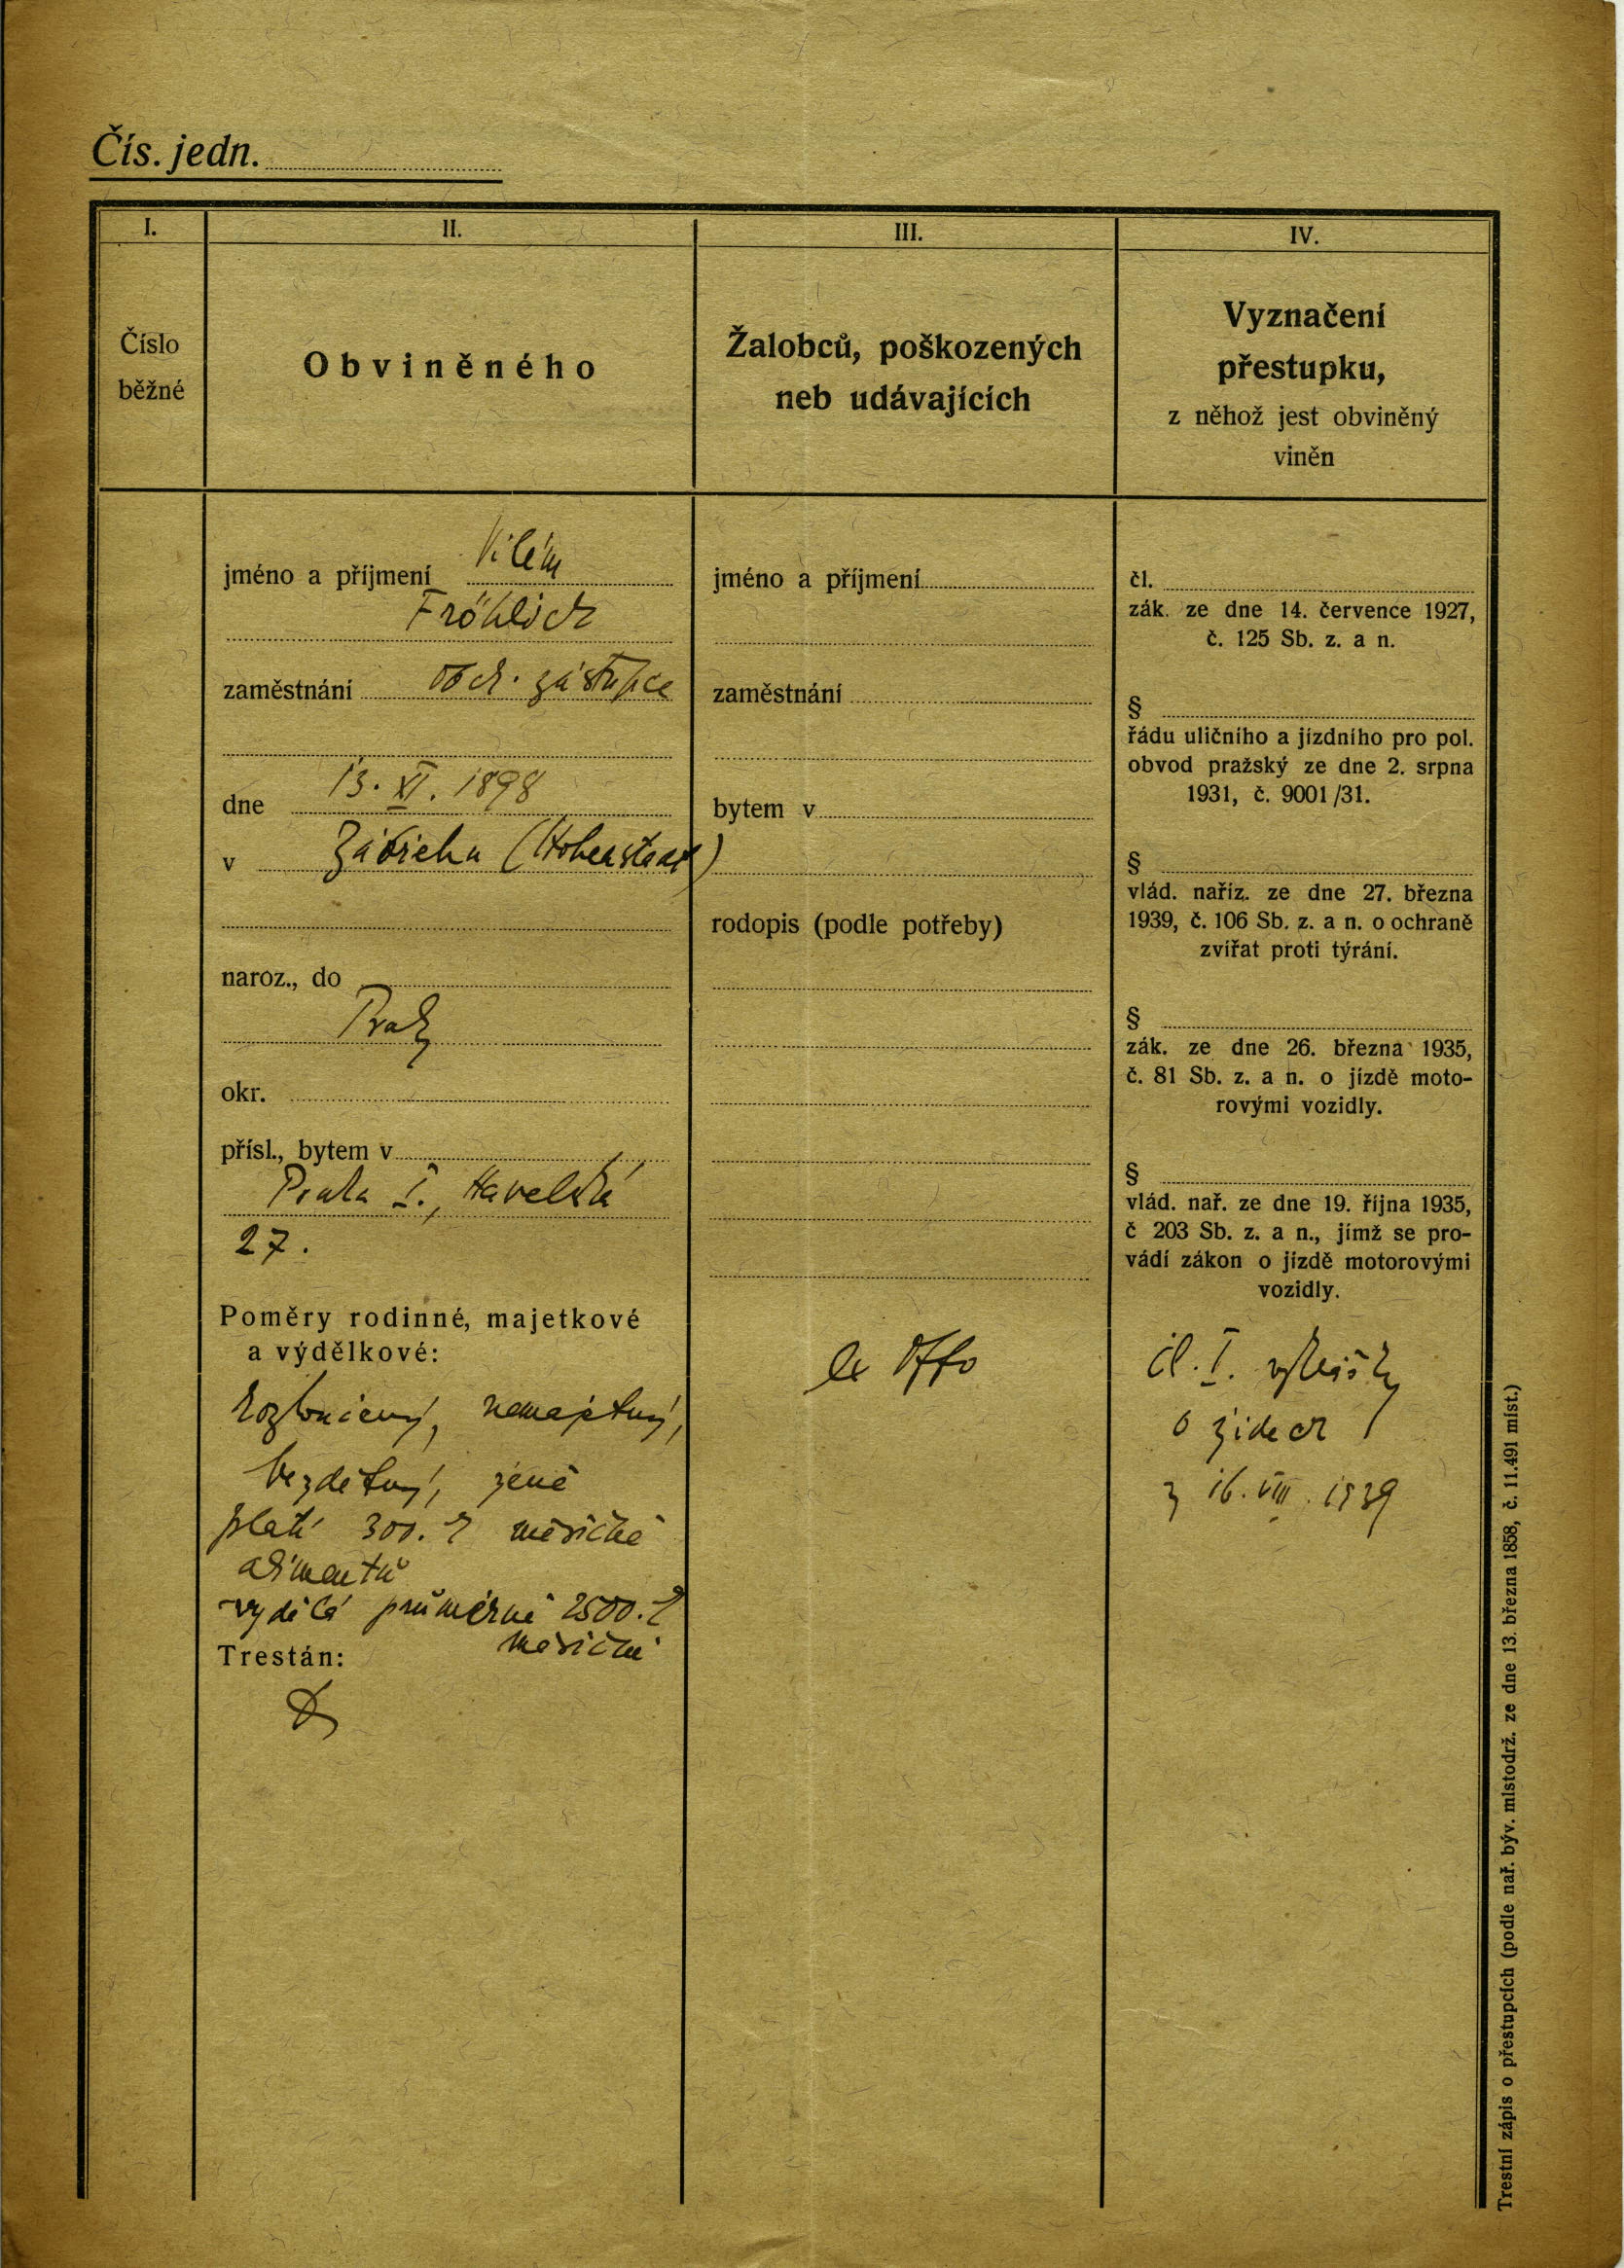 Čís. jedn.
I.
II.
III.
IV.
Číslo
běžné
Obviněného
Žalobců, poškozených
neb udávajících
Vyznačení
přestupku,
z něhož jest obviněný
viněn
jméno a příjmení Vilém
Fröhlich
zaměstnání obch. zástupce
dne 13. XI. 1898
v Zábřehu (Hohenstadt)
naroz., do
Prahy
okr.
přísl., bytem v
Praha I., Havelská
27.
Poměry rodinné, majetkové
a výdělkové:
rozloučený, nemajetný,
bezdětný, ženě
platí 300.- měsíčně
alimentů
vydělá průměrně 2500.-
měsíčně
Trestán:
jméno a příjmení
zaměstnání
bytem v
rodopis (podle potřeby)
ex offo
čl.
zák. ze dne 14. července 1927,
č. 125 Sb. z. a n.
§
řádu uličního a jízdního pro pol.
obvod pražský ze dne 2. srpna
1931, č. 9001/31.
§
vlád. naříz. ze dne 27. března
1939, č. 106 Sb. z. a n. o ochraně
zvířat proti týrání.
§
zák. ze dne 26. března 1935,
č. 81 Sb. z. a n. o jízdě moto-
rovými vozidly.
§
vlád. nař. ze dne 19. října 1935,
č 203 Sb. z. a n., jímž se pro-
vádí zákon o jízdě motorovými
vozidly.
čl. I. vyhlášky
o židech
z 16. VIII. 1939
Trestní zápis o přestupcích (podle nař. býv. místodrž. ze dne 13. března 1858, č. 11.491 míst.)